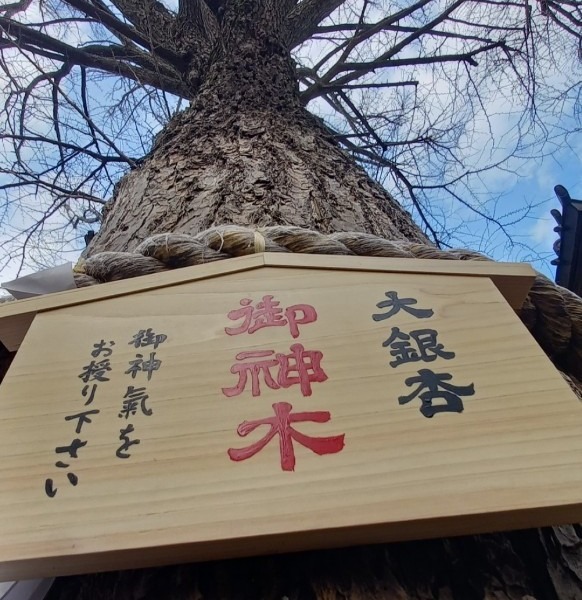 大銀杏
御神木
御神氣を
お授り下さい